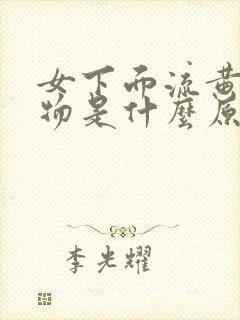 女下而流黄
物是什麼原
李光耀